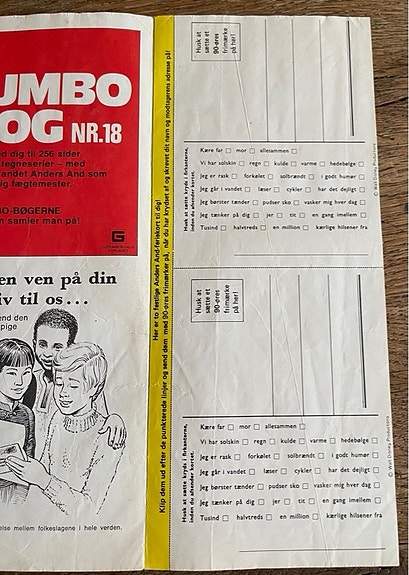 UMBO
OG NR.18
d dig til 256 sider
tegneserier – med
andet Anders And som
ig fægtemester.
BO-BØGERNE
n samler man på!
G
en ven på din
iv til os...
end den
pige
else mellem folkeslagene i hele verden.
Klip dem ud efter de punkterede linjer og send dem med 90-øres frimærker på, når du har krydset af og skrevet dit navn og modtagerens adresse på!
Her er to festlige Anders And-feriekort til dig!
Husk at
sætte et
90-øres
frimærke
på her!
Husk at sætte kryds i firkanterne,
inden du afsender kortet.
Kære far □ mor □ allesammen □
Vi har solskin □ regn □ kulde □ varme □ hedebølge □
Jeg er rask □ forkølet □ solbrændt □ i godt humør □
Jeg går i vandet □ læser □ cykler □ har det dejligt □
Jeg børster tænder □ pudser sko □ vasker mig hver dag □
Jeg tænker på dig □ jer □ tit □ en gang imellem □
Tusind □ halvtreds □ en million □ kærlige hilsener fra
© Walt Disney Productions
Husk at
sætte et
90-øres
frimærke
på her!
Husk at sætte kryds i firkanterne,
inden du afsender kortet.
Kære far □ mor □ allesammen □
Vi har solskin □ regn □ kulde □ varme □ hedebølge □
Jeg er rask □ forkølet □ solbrændt □ i godt humør □
Jeg går i vandet □ læser □ cykler □ har det dejligt □
Jeg børster tænder □ pudser sko □ vasker mig hver dag □
Jeg tænker på dig □ jer □ tit □ en gang imellem □
Tusind □ halvtreds □ en million □ kærlige hilsener fra
© Walt Disney Productions